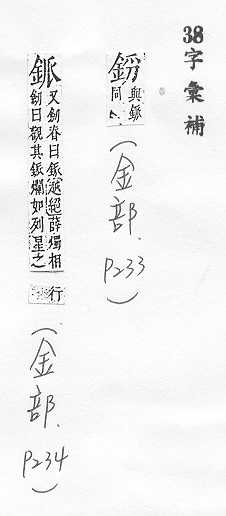 38
字彙補
與
同
(金部.
P233
)
又劒春曰 越絕薛燭相
劒曰觀其 爛如列星之
行
(金部.
P234
)